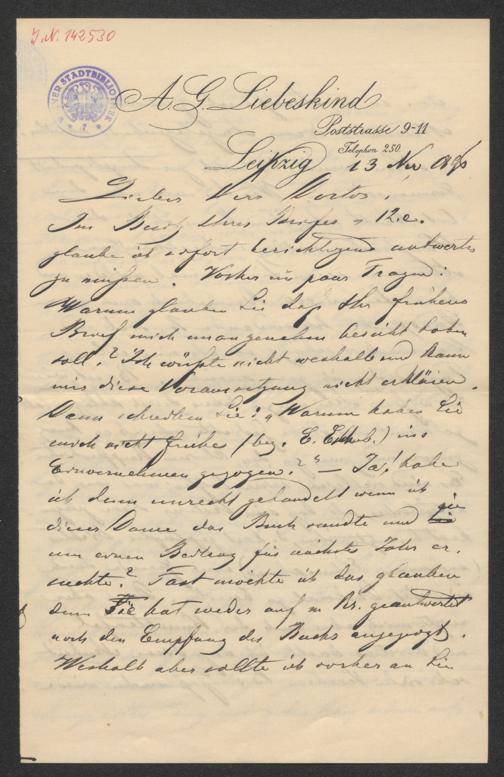 J.N. 142530
A. G. Liebeskind
Poststrasse 9-11
Telephon 250.
Leipzig 13 Nov
Liebes Doctor!
Im Besitz Ihres Briefes v 12.c.
glaube ich sofort berichtigend antworten
zu müssen. Vorher ein paar Fragen:
Warum glauben Sie daß Ihr früherer
Brief mich unangenehm berührt haben
soll? Ich wüßte nicht weshalb und kann
mir diese Voraussetzung nicht erklären.
Dann schreiben Sie: "Warum haben Sie
mich nicht früher (bez. E.) ins
Einvernehmen gezogen?" — Ja! habe
ich denn unrecht gehandelt wenn ich
dieser Dame das Buch sandte und sie
um einen Beitrag für nächstes Jahr er-
suchte? Fast möchte ich das glauben
denn Sie hat weder auf m Br. geantwortet
noch den Empfang des Buchs angezeigt.
Weshalb aber sollte ich vorher an Sie